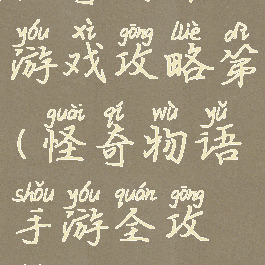 yóu xì gōng lüè dì
游戏攻略第
guài qí wù yǔ
(怪奇物语
shǒu yóu quán gōng
手游全攻